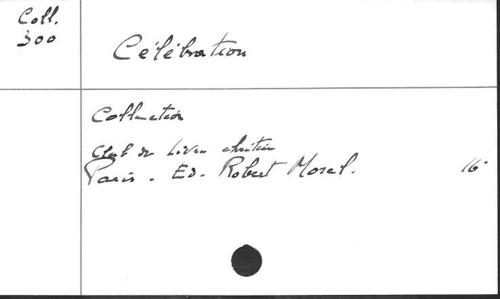 Coll.
300
Célébration
Collection
Club du Livre chrétien
Paris. Ed. Robert Morel. 16°